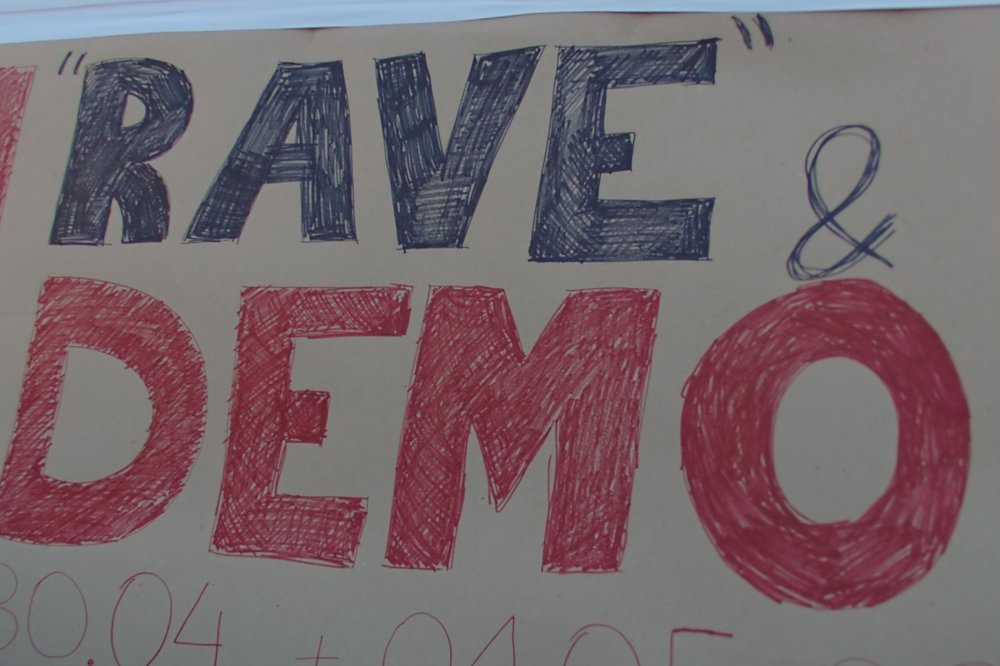 "RAVE" &
DEMO
30.04 + 01.05